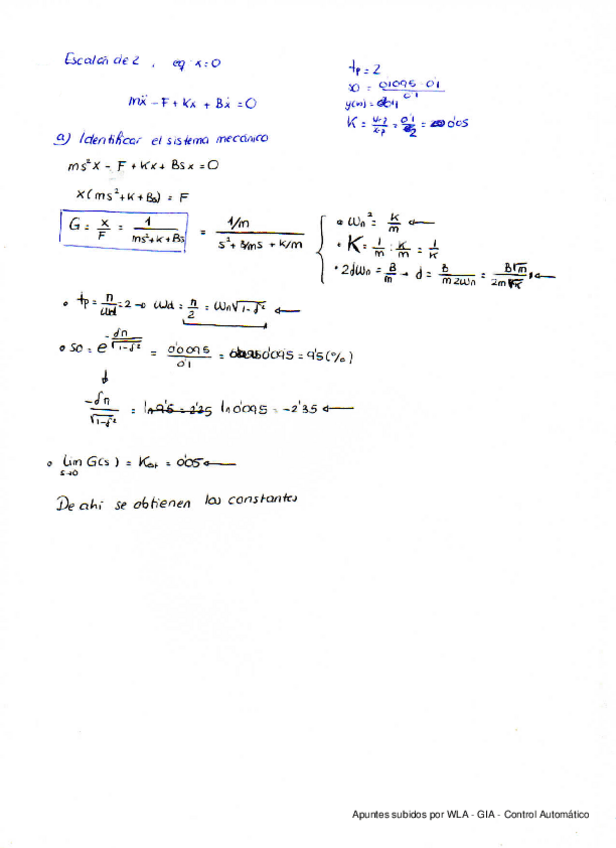 Escalón de 2 , eq x=0
mẍ - F + Kx + Bẋ = 0
tp = 2
SO = (0'1095 - 0'1)/0'1
y(∞) = 0'1
K = = 0'1/2 = 0'05
a) Identificar el sistema mecánico
ms²X - F + Kx + Bsx = 0
X(ms²+K+Bs) = F
G = X/F = 1/(ms²+K+Bs) = (1/m)/(s² + B/ms + K/m)
• ωn² = K/m ←
• K = 1/m : K/m = 1/K
• 2dωn = B/m → d = B/(m2ωn) = B√m/(2m√K) ←
• tp = π/ωd = 2 → ωd = π/2 = ωn√1-δ² ←
• SO = e^(-δπ/√1-δ²) = 0'0095/0'1 = 0'095 = 9'5(%)
↓
-δπ/√1-δ² = ln 9'5 = 2'25 ln 0'095 = -2'35 ←
• lim s→0 G(s) = Kest = 0'05 ←
De ahí se obtienen las constantes
Apuntes subidos por WLA - GIA - Control Automático